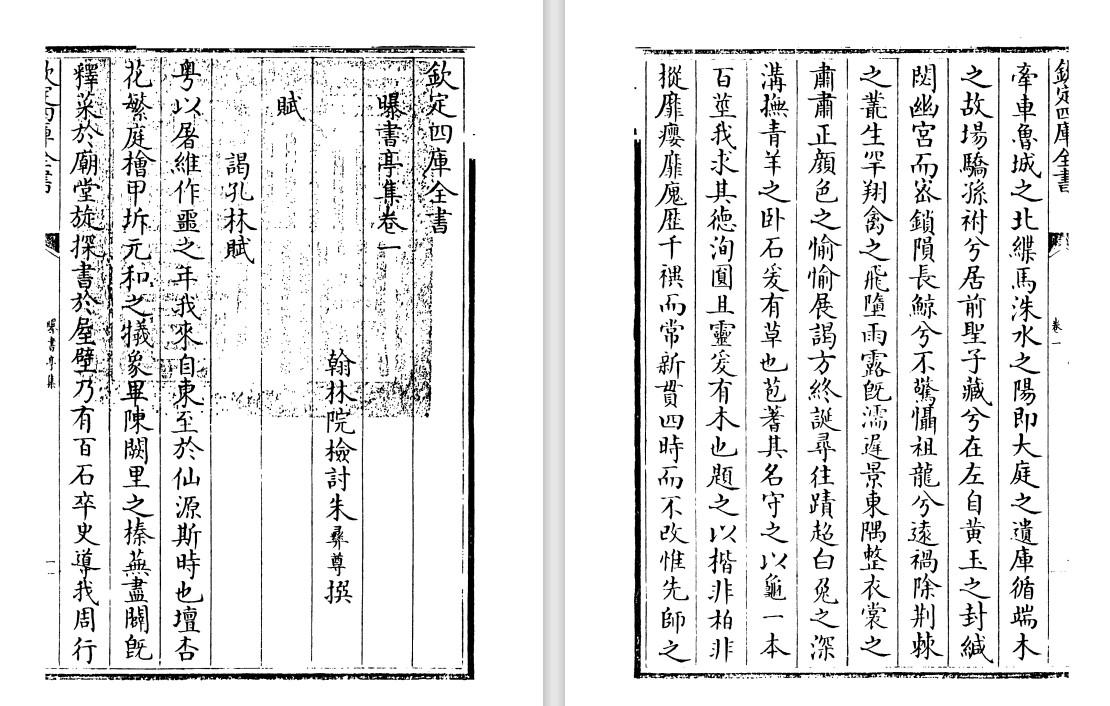 欽定四庫全書
曝書亭集卷一
翰林院檢討朱彝尊撰
賦
謁孔林賦
粤以屠維作噩之年我來自東至於仙源斯時也壇杏
花繁庭檜甲坼元和之犧象畢陳闕里之榛蕪盡闢旣
釋菜於廟堂旋探書於屋壁乃有百石卒史導我周行
欽定四庫全書
曝書亭集
一
欽定四庫全書
卷一
牽車魯城之北緤馬洙水之陽即大庭之遺庫循端木
之故場驕孫祔兮居前聖子藏兮在左自黃玉之封緘
閟幽宮而密鎖隕長鯨兮不驚懾祖龍兮遠禍除荆棘
之叢生罕翔禽之飛墮雨露旣濡遲景東隅整衣裳之
肅肅正顔色之愉愉展謁方終誕尋往蹟超白兔之深
溝撫青羊之卧石爰有草也苞蓍其名守之以龜一本
百莖我求其德洵圓且靈爰有木也題之以楷非柏非
樅靡癭靡瘣歷千禩而常新貫四時而不改惟先師之